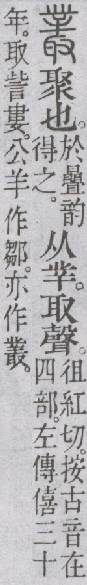 叢聚也。於曡韵得之。从丵。取聲。徂紅切。按古音在四部。左傳僖三十
年。取訾婁。公羊作鄒。亦作叢。